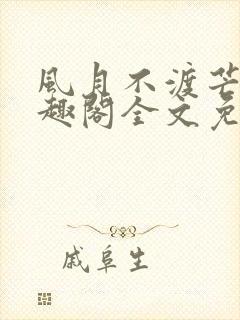 風月不渡芒
趣閣全文免
戚阜生